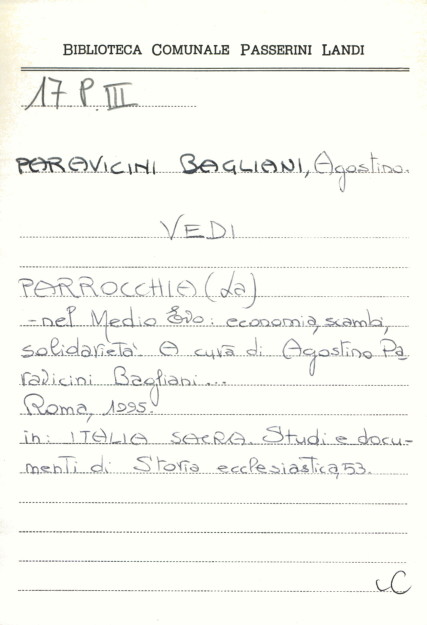 BIBLIOTECA COMUNALE PASSERINI LANDI
17 P. III
PARAVICINI BAGLIANI, Agostino.
VEDI
PARROCCHIA (La)
-nel Medio Evo: economia, scambi,
solidarietà. A cura di Agostino Pa
ravicini Bagliani...
Roma, 1995.
in: ITALIA SACRA. Studi e docu-
menti di Storia ecclesiastica, 53.